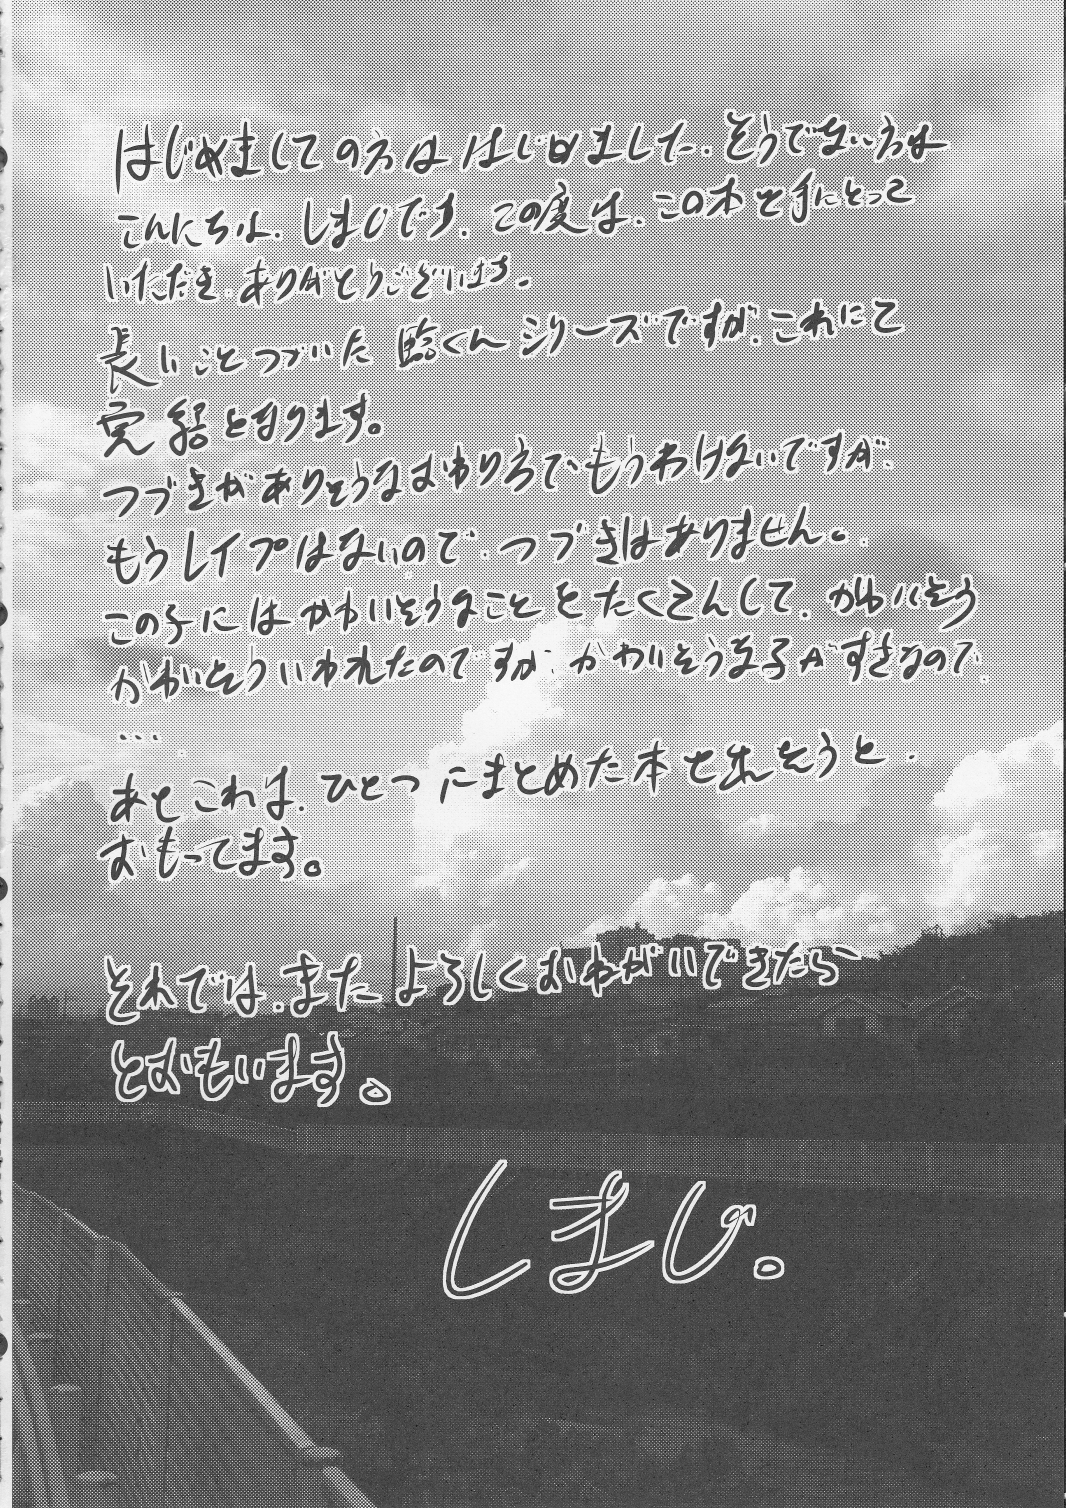 はじめましての方は はじめまして、そうでない方は
こんにちは、しまじです。この度は、この本を手にとって
いただき、ありがとうございます。
長いことつづいた 臨くんシリーズですが、これにて
完結となります。
つづきがありそうなおわり方でもうしわけないですが、
もうレイプはないので、つづきはありません。
この子にはかわいそうなことをたくさんして、かわいそう
かわいそういわれたのですが、かわいそうな子がすきなので、
…
あとこれは、ひとつにまとめた本を出そうと
おもってます。
それでは、またよろしくおねがいできたらー
とおもいます。
しまじ。